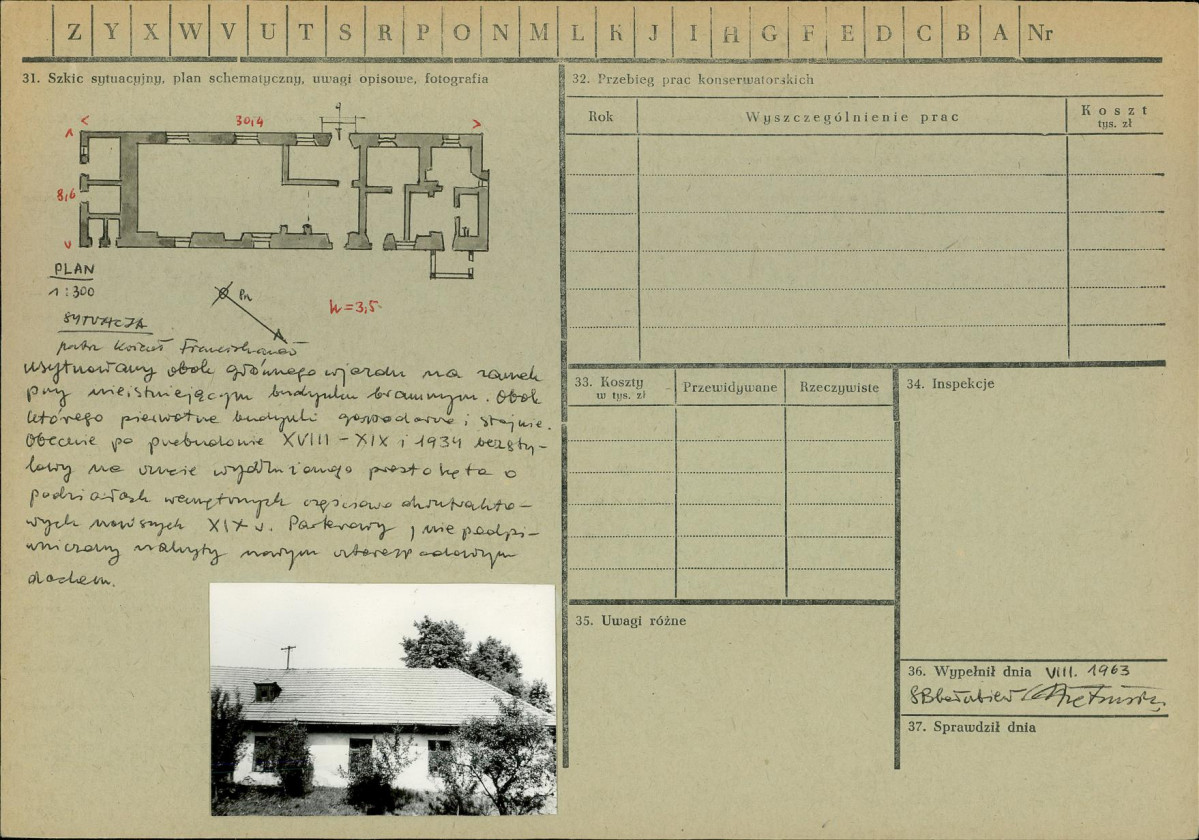 Z Y X W V U T S R P O N M L K J I H G F E D C B A Nr
31. Szkic sytuacyjny, plan schematyczny, uwagi opisowe, fotografia
30,4
8,6
PLAN
1:300
Pn
h=3,5
SYTUACJA
patrz Kościół Franciszkanów
usytuowany obok głównego wjazdu na zamek
przy nieistniejącym budynku bramnym. Obok
którego pierwotne budynki gospodarcze i stajnie.
Obecnie po przebudowie XVIII – XIX i 1934 bezsty-
lowy na rzucie wydłużonego prostokąta o
podziałach wewnętrznych częściowo dwutrakto-
wych nowszych XIX w. Parterowy, nie podpi-
wniczony nakryty nowym czterospadowym
dachem.
32. Przebieg prac konserwatorskich
Rok Wyszczególnienie prac Koszt
tys. zł
33. Koszty Przewidywane Rzeczywiste
w tys. zł
34. Inspekcje
35. Uwagi różne
36. Wypełnił dnia VIII. 1963
37. Sprawdził dnia